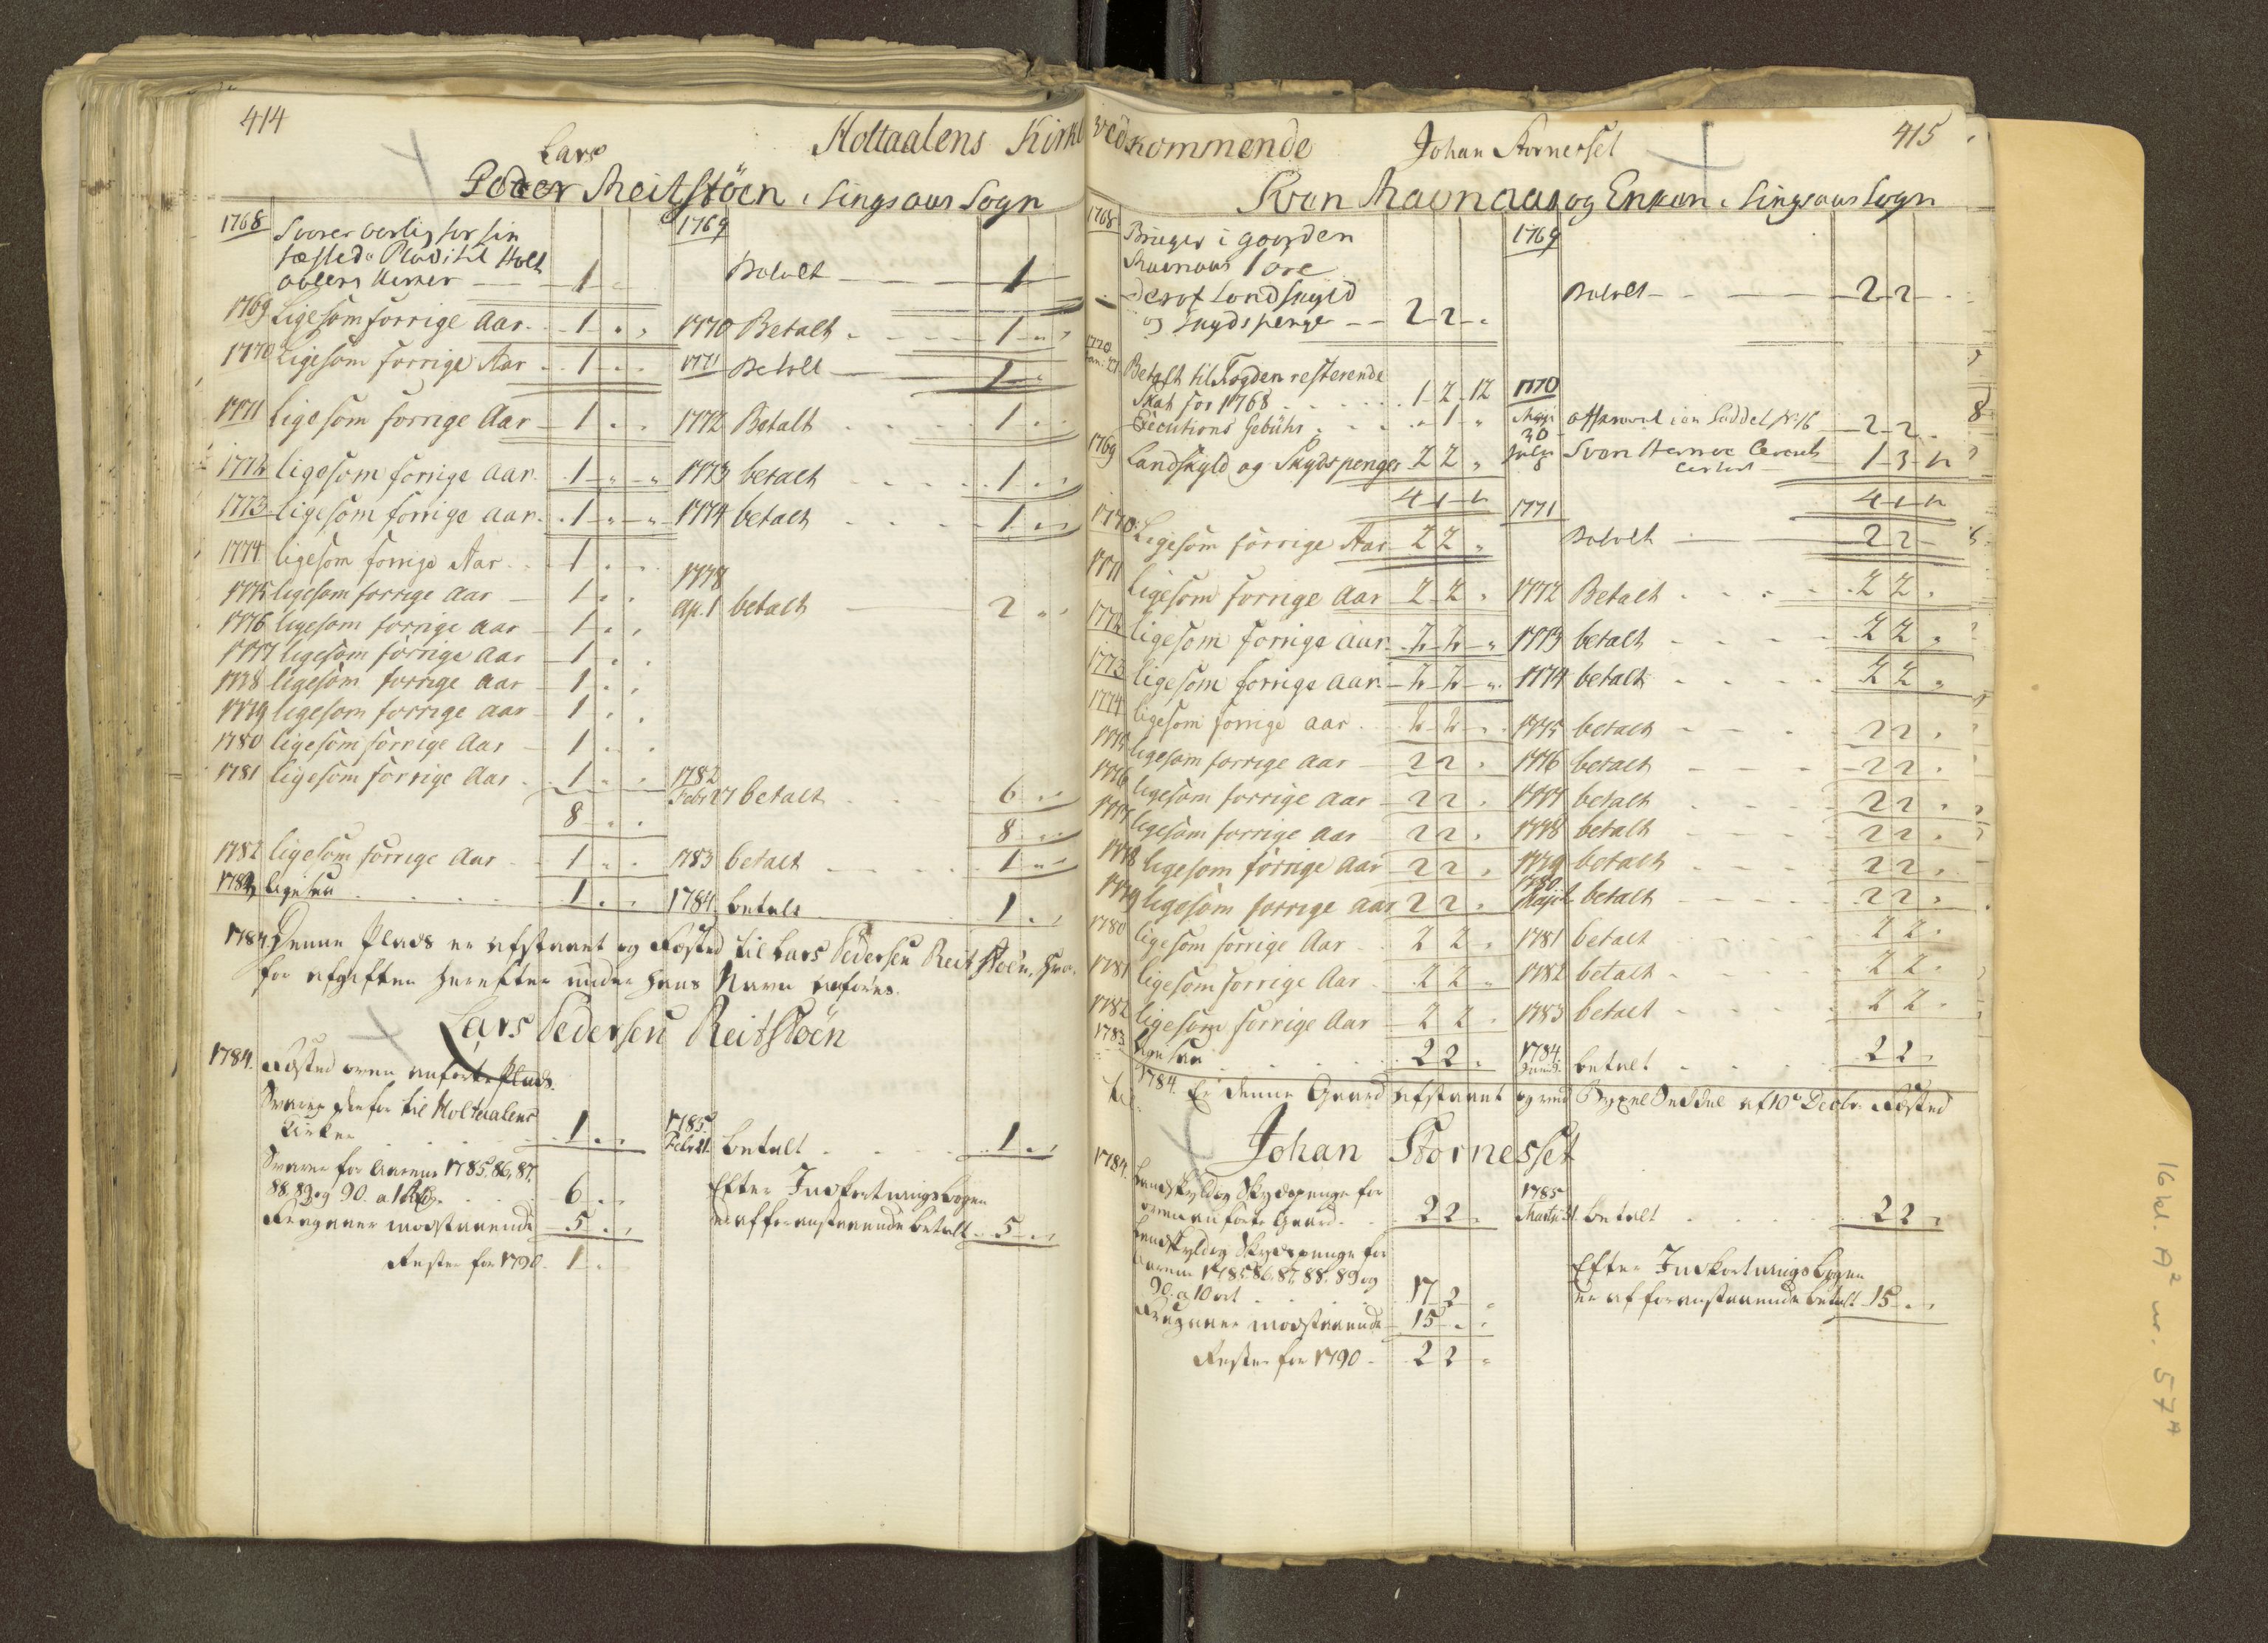 414
Holtaalens Kirke
Lars
Peder Reitstöen i Singsaas Sogn
1768 Svarer aarlig for sin
fæstede Plads til Holt
aalens Kirke 1
1769 Betalt 1
1769 Ligesom forrige Aar 1 1770 Betalt 1
1770 Ligesom forrige Aar 1 1771 Betalt 1
1771 Ligesom forrige Aar 1 1772 Betalt 1
1772 ligesom forrige Aar 1 1773 betalt 1
1773 ligesom forrige Aar 1 1774 betalt 1
1774 ligesom forrige Aar 1
1775 ligesom forrige Aar 1 1778 Ap. 1 betalt 2
1776 ligesom forrige Aar 1
1777 ligesom forrige Aar 1
1778 ligesom forrige Aar 1
1779 ligesom forrige Aar 1
1780 ligesom forrige Aar 1
1781 ligesom forrige Aar 1 1782 Febr 27 betalt 6
8 8
1782 ligesom forrige Aar 1 1783 betalt 1
1783 ligesaa 1 1784 betalt 1
1784 Denne Plads er afstaaet og Fæsted til Lars Pedersen Reitstoen, hvor
for afgiften herefter under hans Navn anføres.
Lars Pedersen Reitstöen
1784. Fæsted oven anførte Plads.
Svarer derfor til Holtaalens
Kirke 1 1785 Febr 21. betalt 1
Svarer for Aarene 1785. 86, 87.
88. 89 og 90. a 1 Rdr. 6
Efter Indkortningsbogen
er af foranstaaende betalt 5
Fragaaer modstaaende 5
Rester for 1790 1
vedkommende
Johan Stornesset
415
Sven Ravnaas og Enken i Singsaas Sogn
1768 Bruger i gaarden
Ravnaas 1 øre
deraf Landskyld
og Skydspenge 2 2
1769 Betalt 2 2
1770 Jan. 27 Betalt til Fogden resterende
Skat for 1768 1 2 12
Executions Gebühr 1
1769 Landskyld og Skydspenger 2 2
4 1 12
1770 Maji 30 2 2
July Sven 1 3 12
4 1 12
1770 Ligesom forrige Aar 2 2 1771 Betalt 2 2
1771 Ligesom forrige Aar 2 2 1772 Betalt 2 2
1772 ligesom forrige Aar 2 2 1773 betalt 2 2
1773 ligesom forrige Aar 2 2 1774 betalt 2 2
1774 ligesom forrige aar 2 2 1775 betalt 2 2
1775 ligesom forrige Aar 2 2 1776 betalt 2 2
1776 ligesom forrige Aar 2 2 1777 betalt 2 2
1777 ligesom forrige Aar 2 2 1778 betalt 2 2
1778 ligesom forrige Aar 2 2 1779 betalt 2 2
1779 ligesom forrige Aar 2 2 1780 Maji betalt 2 2
1780 ligesom forrige Aar 2 2 1781 betalt 2 2
1781 ligesom forrige Aar 2 2 1782 betalt 2 2
1782 ligesom forrige Aar 2 2 1783 betalt 2 2
1783 ligesaa 2 2 1784. betalt 2 2
1784. Er denne Gaard afstaaet og ved Byxel Seddel af 10de Decbr. Fæsted
til
Johan Stornesset
1784. Landskyld og Skydspenge for
oven anførte Gaard 2 2 1785 Martii 31. betalt 2 2
Landskyld og Skydspenge for
Aarene 1785. 86. 87. 88. 89 og
90. a 10 ort 17 2
Efter Indkortningsbogen
er af foranstaaende betalt 15
Fragaaer modstaaende 15
Rester for 1790 2 2
16 kl. A² nr. 57 A